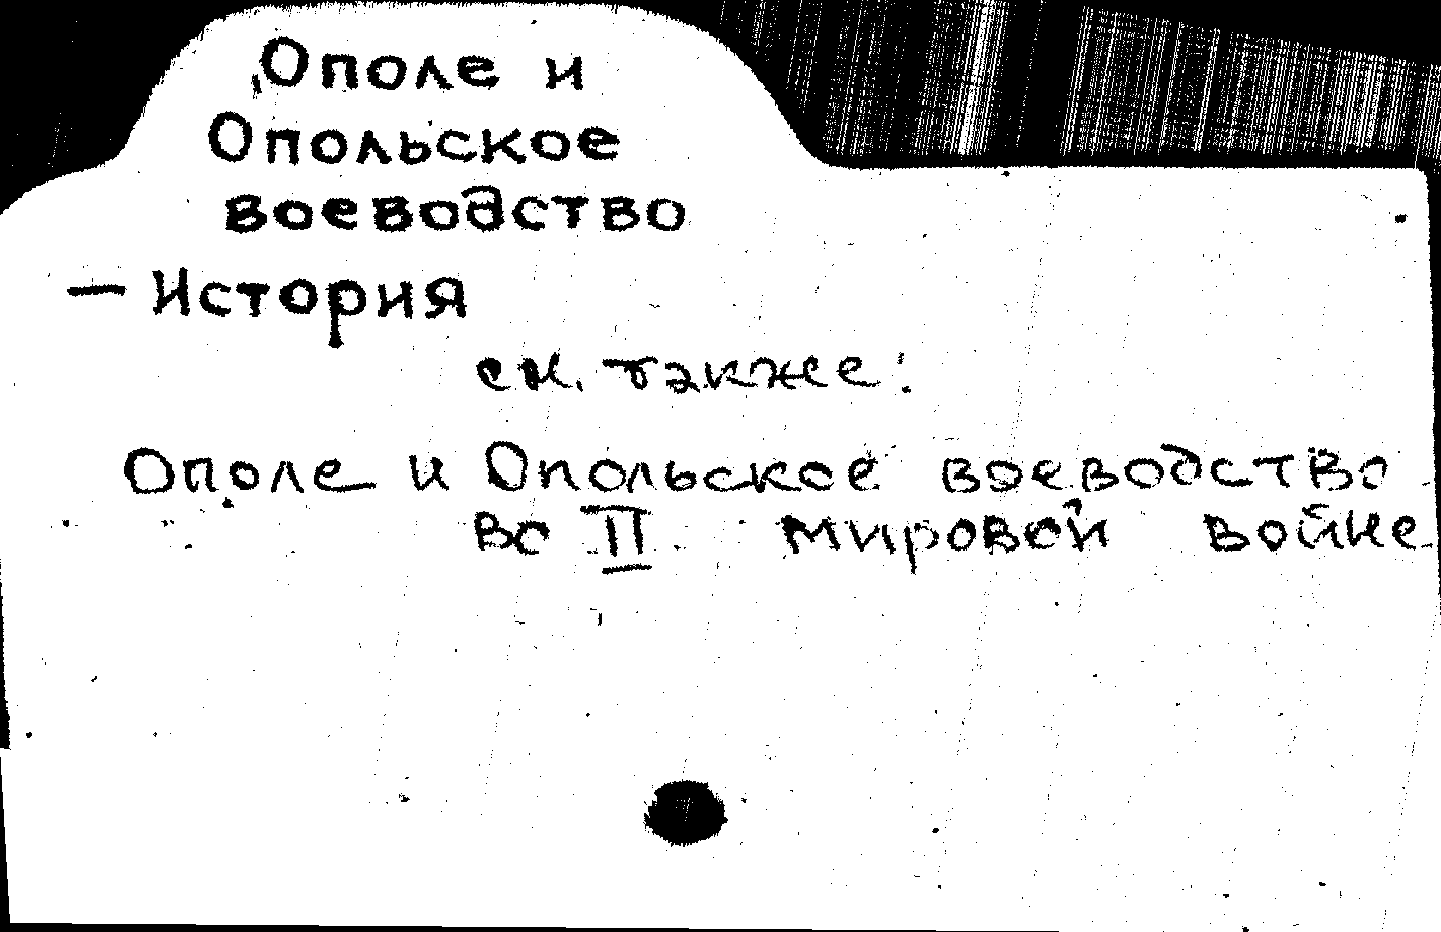 Ополе и
Опольское
воеводство
— История
см. также:
Ополе и Опольское воеводство
во II мировой войне